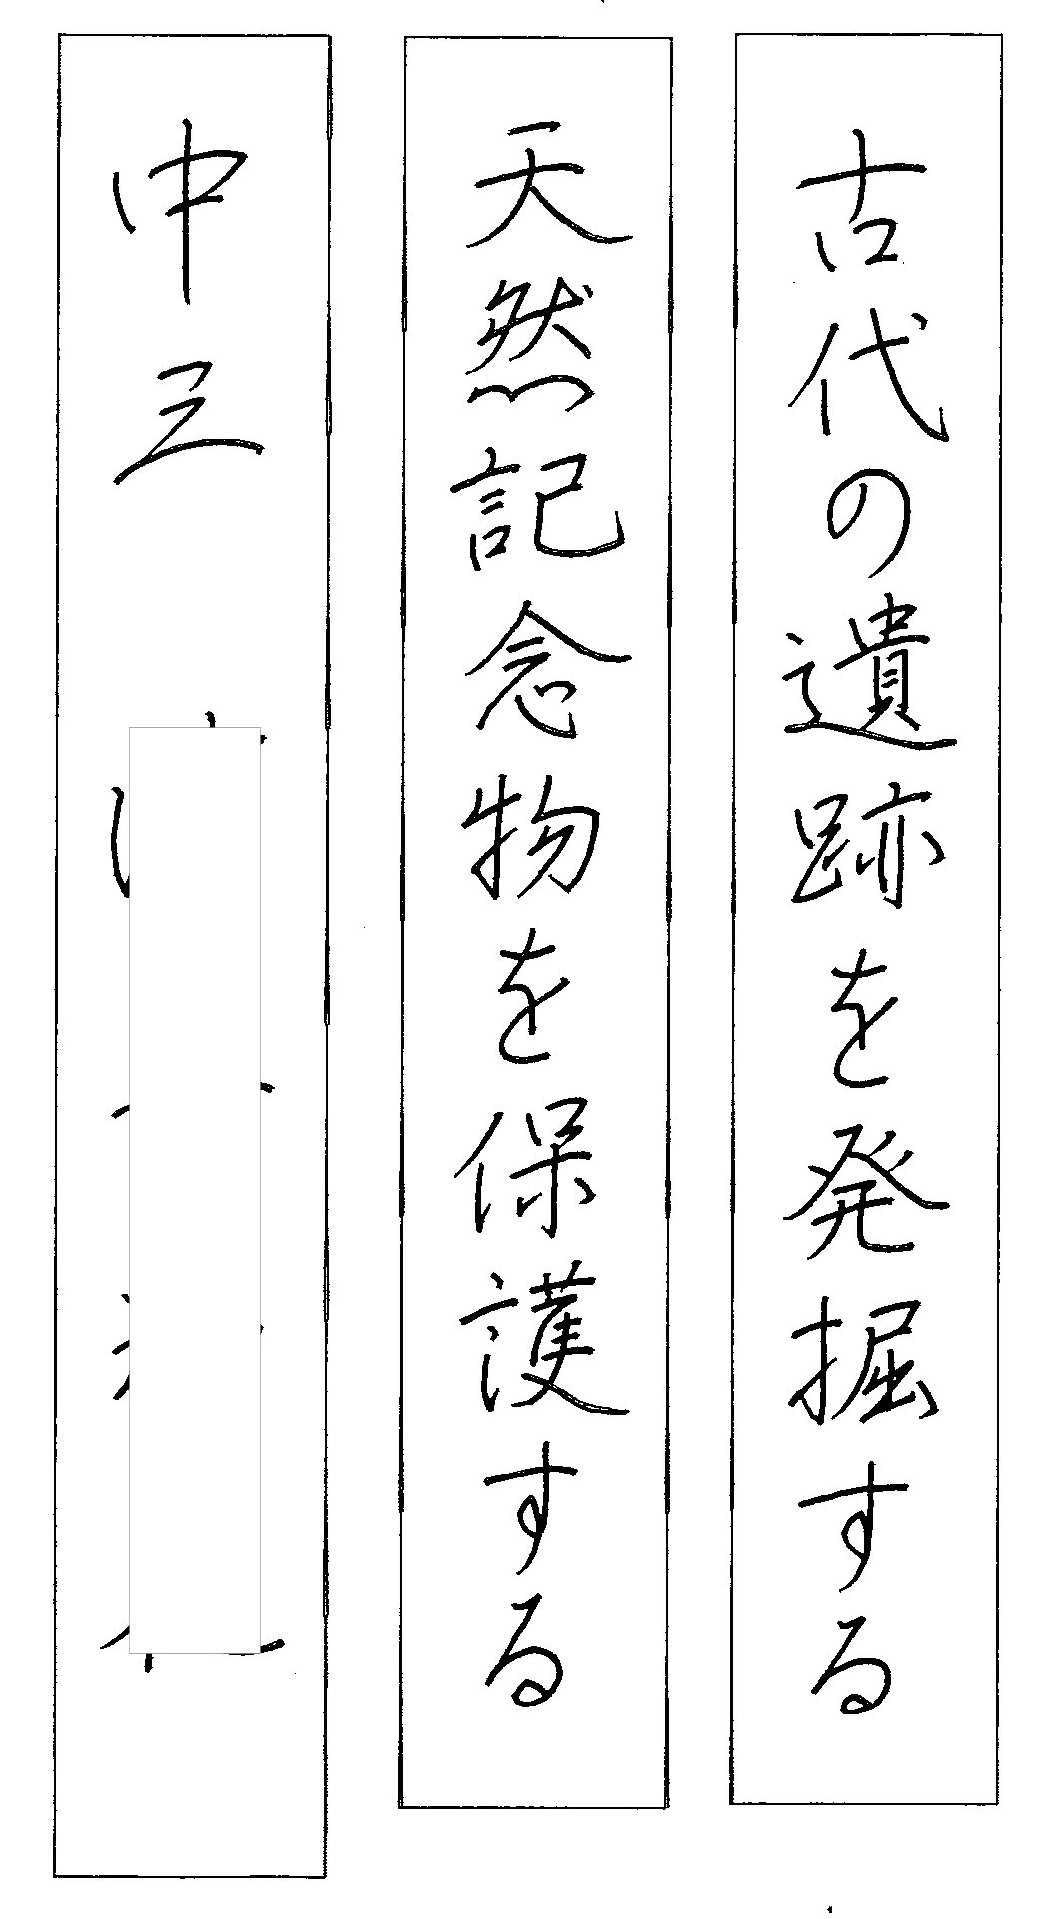 古代の遺跡を発掘する
天然記念物を保護する
中三